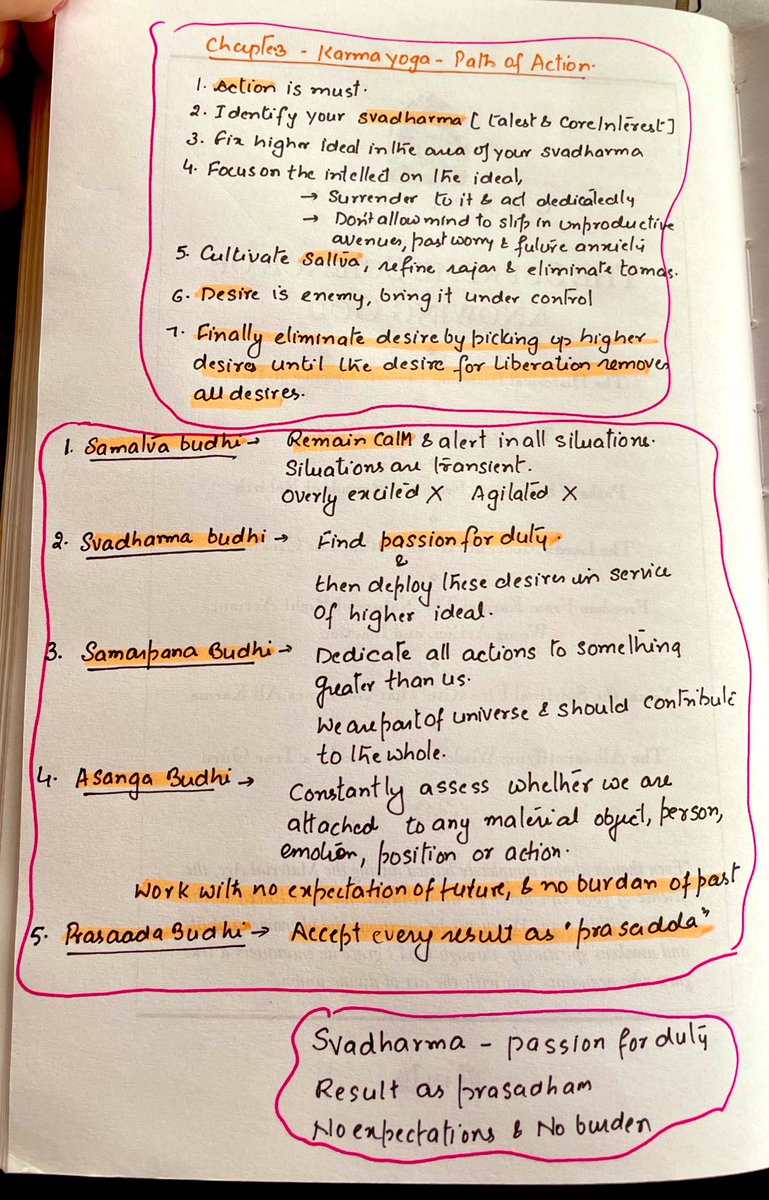 Chapter3 - Karmayoga - Path of Action.
1. Action is must.
2. Identify your svadharma [talent & CoreInterest]
3. Fix higher ideal in the area of your svadharma
4. Focus on the intellect on the ideal,
→ Surrender to it & act dedicatedly
→ Don't allow mind to slip in unproductive
avenues, past worry & future anxiety
5. Cultivate Sattva, refine rajas & eliminate tomas.
6. Desire is enemy, bring it under control
7. Finally eliminate desire by picking up higher
desires until the desire for Liberation removes
all desires.
1. Samatva budhi → Remain calm & alert in all situations.
Situations are transient.
Overly excited X Agitated X
2. Svadharma budhi → Find passion for duty.
&
then deploy these desires in service
of higher ideal.
3. Samarpana Budhi → Dedicate all actions to something
greater than us.
We are part of universe & should contribute
to the whole.
4. Asanga Budhi → Constantly assess whether we are
attached to any material object, person,
emotion, position or action.
Work with no expectation of future, & no burdan of past
5. Prasaada Budhi → Accept every result as "prasadda"
Svadharma - passion for duty
Result as prasadham
No expectations & No burden